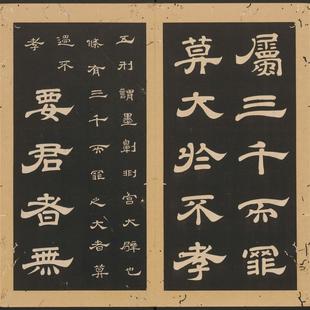 屬三千而罪
莫大於不孝
五刑謂墨劓剕宮大辟也
條有三千而罪之大者莫
過不
孝
要君者無